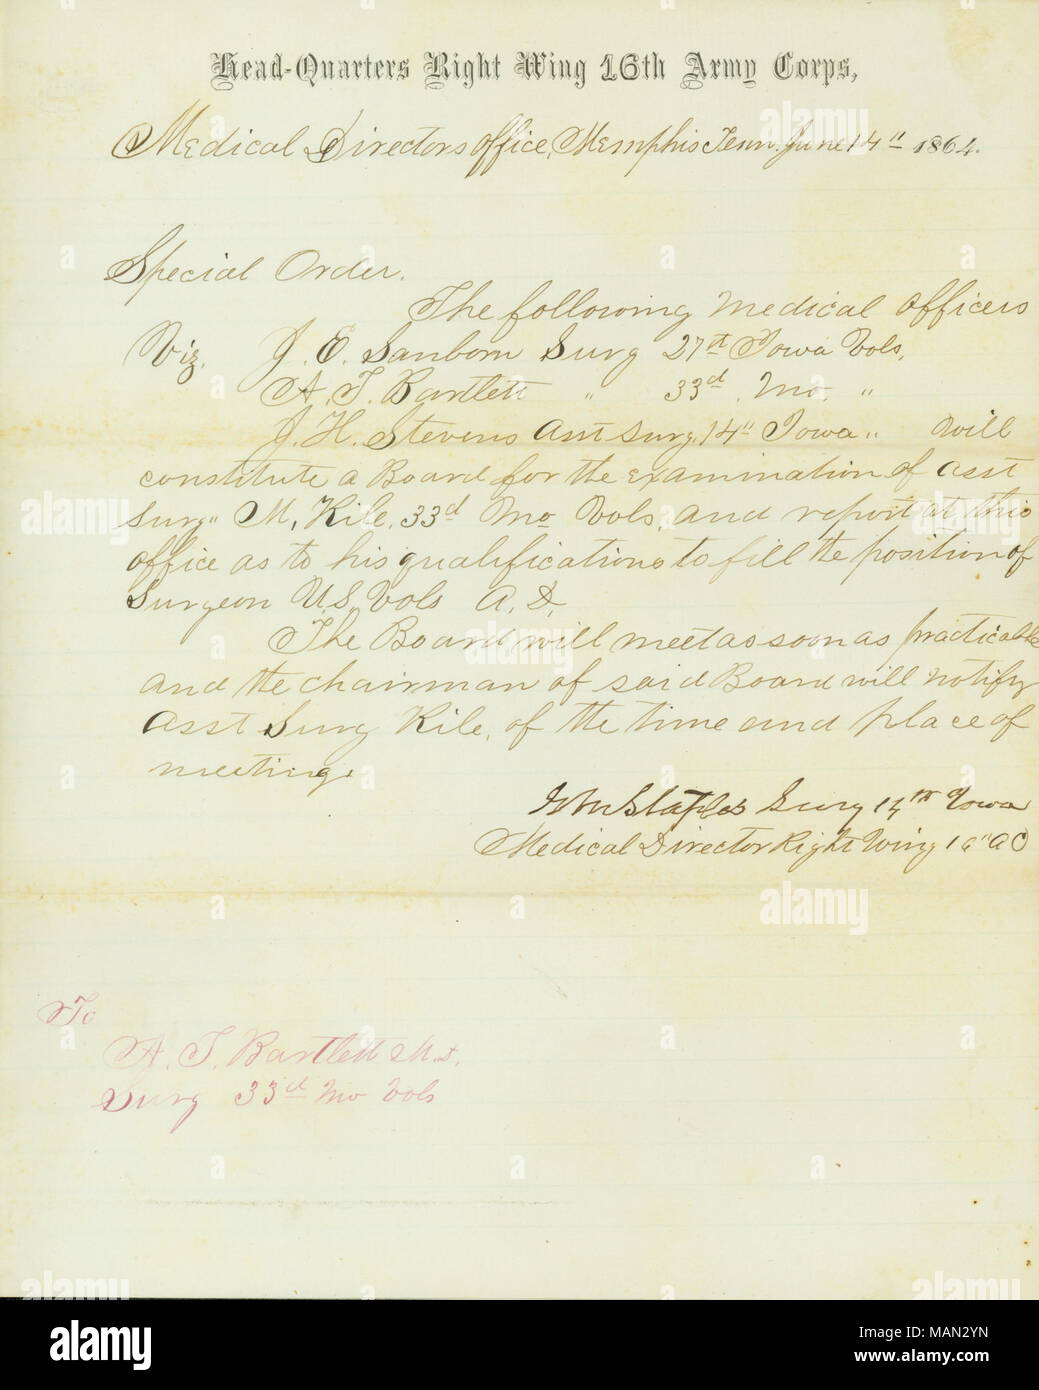 Head-Quarters Right Wing 16th Army Corps,
Medical Directors office, Memphis Tenn. June 14" 1864.
Special Order.
The following Medical officers
Viz. J. E. Sanborn Surg 27th Iowa Vols,
A. T. Bartlett " 33d Mo. "
J. H. Stevens Asst Surg. 14" Iowa " will
constitute a Board for the examination of asst
surg" M. Kile, 33d Mo Vols, and report at this
office as to his qualifications to fill the position of
Surgeon U.S. Vols A. D.
The Board will meet as soon as practicable
and the chairman of said Board will notify
Asst Surg Kile, of the time and place of
meeting.
Wm Staples Surg 14th Iowa
Medical Director Right Wing 16" A C
To
A. T. Bartlett M.D.
Surg 33d Mo Vols
alamy
Image ID: MAN2YN
www.alamy.com